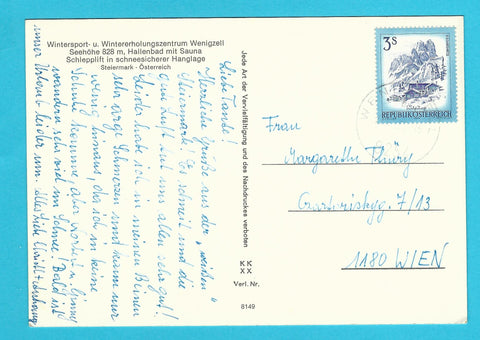 Wintersport- u. Wintererholungszentrum Wenigzell
Seehöhe 828 m, Hallenbad mit Sauna
Schlepplift in schneesicherer Hanglage
Steiermark - Österreich
Liebe Tante!
Herzliche Grüße aus der „weißen"
Steiermark! Es schneit und die
Luft tut uns allen sehr gut!
Leider hab ich in meinen Beinen
sehr arge Schmerzen und kann nur
wenig hinaus, da ich in keine
Schuhe komme, aber
wandern sehr viel im Schnee! Bald ist
unser Urlaub leider um. Alles Liebe
Jede Art der Vervielfältigung und des Nachdruckes verboten
KK
XX
Verl. Nr.
8149
3 S
REPUBLIK ÖSTERREICH
Frau
Margarethe
7/13
1180 WIEN